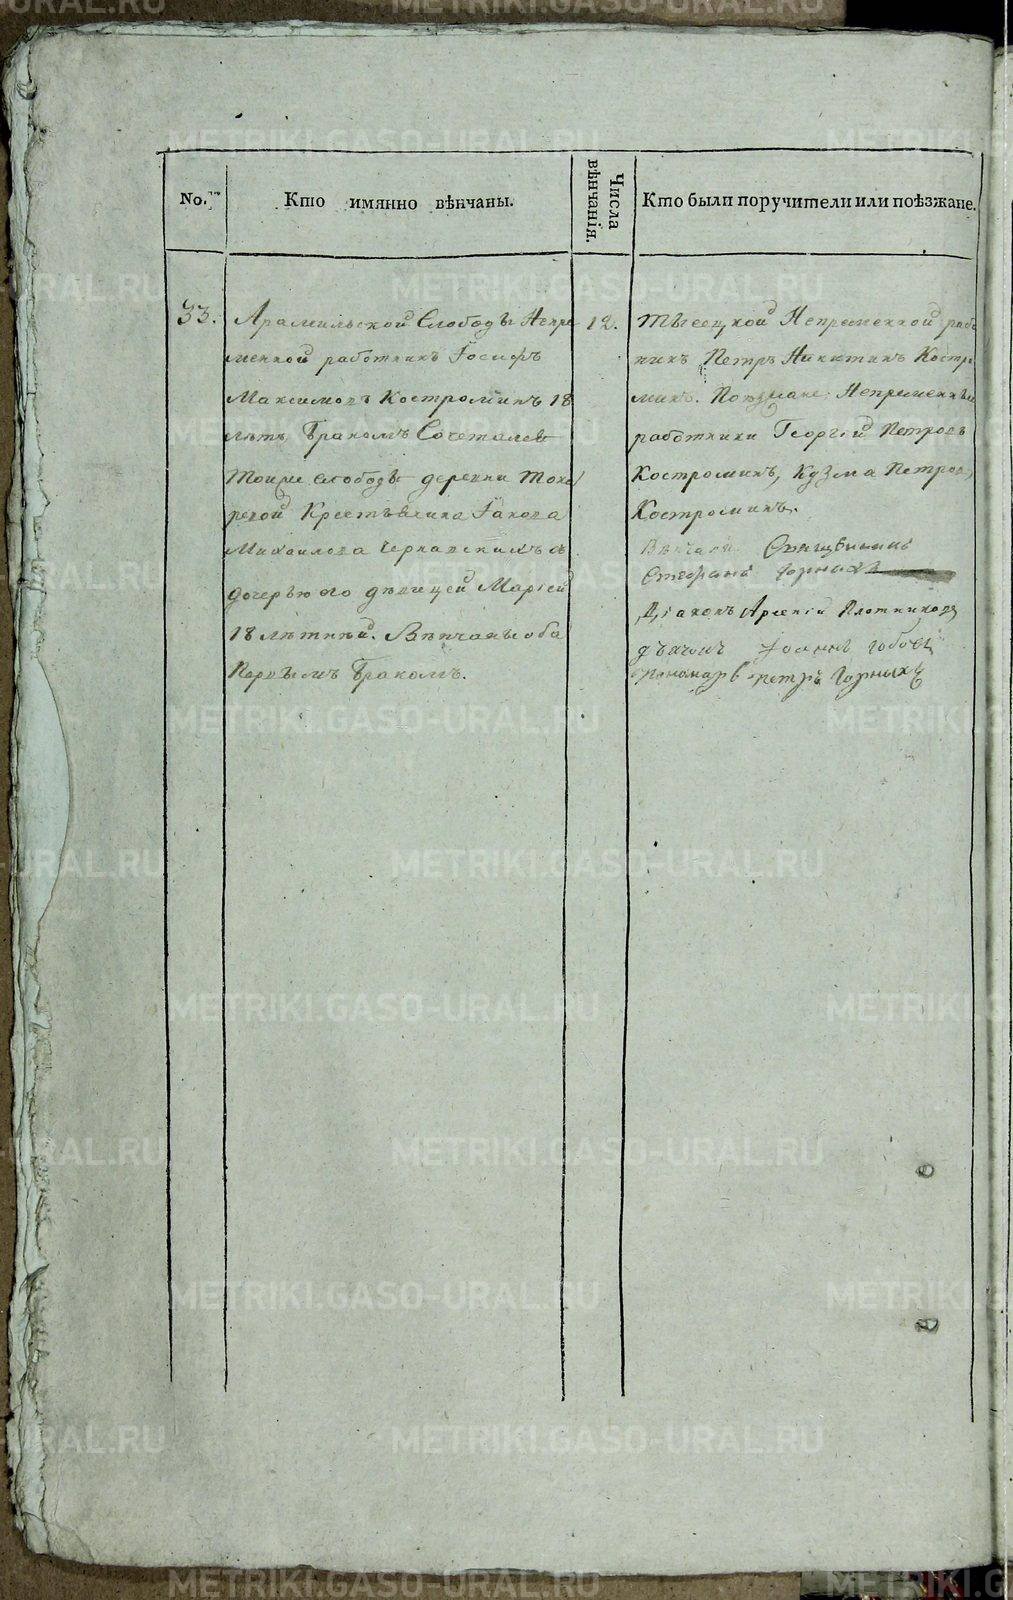 No.
Кто имянно вѣнчаны.
Числа
вѣнчанія.
Кто были поручители или поѣзжане.
33.
Арамильской Слободы Непре
менной работникъ Іосифъ
Максимовъ Костроминъ 18
лѣтъ, бракомъ Сочетался
Тоиже слободы деревни Тока
ревой Крестьянина Іакова
Михаилова Чернавскихъ с
дочерью его дѣвицей Маріей
18 лѣтней. Вѣнчаны оба
Первымъ бракомъ.
12.
Тысецкой Непременной рабо
никъ Петръ Никитинъ Костро
минъ. Поѣзжане: Непременныи
работники Георгій Петровъ
Костроминъ, Кузма Петровъ
Костроминъ.
Вѣнчали Священникъ
Стефанъ Горныхъ
Діаконъ Арсеній Плотниковъ
дьячокъ Іоаннъ
пономарь петръ Горныхъ
METRIKI.GASO-URAL.RU